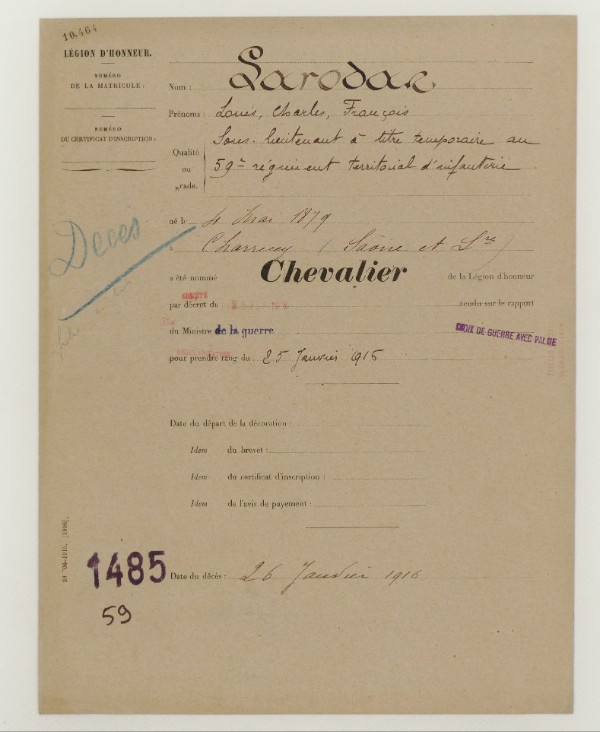 10.464
LÉGION D'HONNEUR.
NUMÉRO
DE LA MATRICULE :
NUMÉRO
DU CERTIFICAT D'INSCRIPTION :
Nom : Larodas
Prénoms : Louis, Charles, François
Qualité
ou
grade.
Sous-lieutenant à titre temporaire au
59e régiment territorial d'infanterie
né le 4 Mai 1879
à Charrecey (Saône et Lre)
Décès
a été nommé Chevalier de la Légion d'honneur
par décret du rendu sur le rapport
du Ministre de la guerre
CROIX DE GUERRE AVEC PALME
pour prendre rang du 25 Janvier 1916
Date du départ de la décoration :
Idem du brevet :
Idem du certificat d'inscription :
Idem de l'avis de payement :
1485
59
Date du décès : 26 Janvier 1916